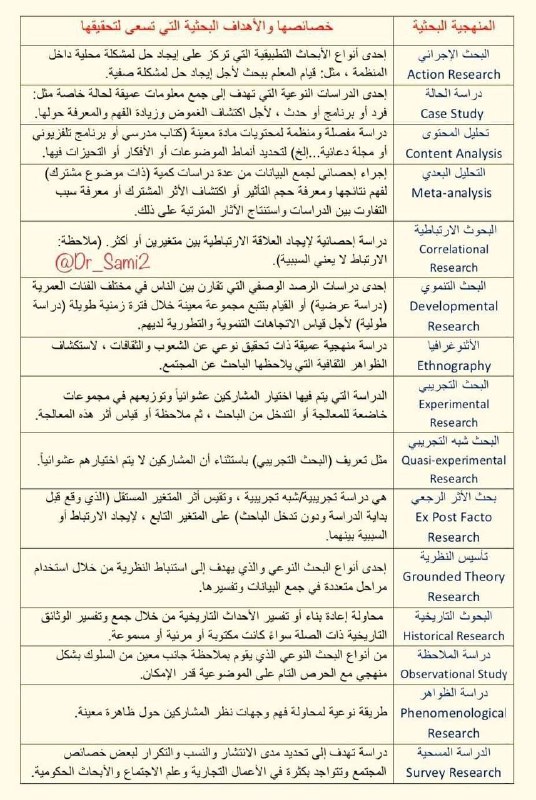 المنهجية البحثية
خصائصها والأهداف البحثية التي تسعى لتحقيقها
البحث الإجرائي
Action Research
إحدى أنواع الأبحاث التطبيقية التي تركز على إيجاد حل لمشكلة محلية داخل
المنظمة ، مثل: قيام المعلم ببحث لأجل إيجاد حل لمشكلة صفية.
دراسة الحالة
Case Study
إحدى الدراسات النوعية التي تهدف إلى جمع معلومات عميقة لحالة خاصة مثل:
فرد أو برنامج أو حدث ، لأجل اكتشاف الغموض وزيادة الفهم والمعرفة حولها.
تحليل المحتوى
Content Analysis
دراسة مفصلة ومنظمة لمحتويات مادة معينة (كتاب مدرسي أو برنامج تلفزيوني
أو مجلة دعائية...إلخ) لتحديد أنماط الموضوعات أو الأفكار أو التحيزات فيها.
التحليل البعدي
Meta-analysis
إجراء إحصائي لجمع البيانات من عدة دراسات كمية (ذات موضوع مشترك)
لفهم نتائجها ومعرفة حجم التأثير أو اكتشاف الأثر المشترك أو معرفة سبب
التفاوت بين الدراسات واستنتاج الآثار المترتبة على ذلك.
البحوث الارتباطية
Correlational
Research
دراسة إحصائية لإيجاد العلاقة الارتباطية بين متغيرين أو أكثر. (ملاحظة:
الارتباط لا يعني السببية).
@Dr_Sami2
البحث التنموي
Developmental
Research
إحدى دراسات الرصد الوصفي التي تقارن بين الناس في مختلف الفئات العمرية
(دراسة عرضية) أو القيام بتتبع مجموعة معينة خلال فترة زمنية طويلة (دراسة
طولية) لأجل قياس الاتجاهات التنموية والتطورية لديهم.
الأثنوغرافيا
Ethnography
دراسة منهجية عميقة ذات تحقيق نوعي عن الشعوب والثقافات ، لاستكشاف
الظواهر الثقافية التي يلاحظها الباحث عن المجتمع.
البحث التجريبي
Experimental
Research
الدراسة التي يتم فيها اختيار المشاركين عشوائياً وتوزيعهم في مجموعات
خاضعة للمعالجة أو التدخل من الباحث ، ثم ملاحظة أو قياس أثر هذه المعالجة.
البحث شبه التجريبي
Quasi-experimental
Research
مثل تعريف (البحث التجريبي) باستثناء أن المشاركين لا يتم اختيارهم عشوائياً.
بحث الأثر الرجعي
Ex Post Facto
Research
هي دراسة تجريبية/شبه تجريبية ، وتقيس أثر المتغير المستقل (الذي وقع قبل
بداية الدراسة ودون تدخل الباحث) على المتغير التابع ، لإيجاد الارتباط أو
السببية بينهما.
تأسيس النظرية
Grounded Theory
Research
إحدى أنواع البحث النوعي والذي يهدف إلى استنباط النظرية من خلال استخدام
مراحل متعددة في جمع البيانات وتفسيرها.
البحوث التاريخية
Historical Research
محاولة إعادة بناء أو تفسير الأحداث التاريخية من خلال جمع وتفسير الوثائق
التاريخية ذات الصلة سواءً كانت مكتوبة أو مرئية أو مسموعة.
دراسة الملاحظة
Observational Study
من أنواع البحث النوعي الذي يقوم بملاحظة جانب معين من السلوك بشكل
منهجي مع الحرص التام على الموضوعية قدر الإمكان.
دراسة الظواهر
Phenomenological
Research
طريقة نوعية لمحاولة فهم وجهات نظر المشاركين حول ظاهرة معينة.
الدراسة المسحية
Survey Research
دراسة تهدف إلى تحديد مدى الانتشار والنسب والتكرار لبعض خصائص
المجتمع وتتواجد بكثرة في الأعمال التجارية وعلم الاجتماع والأبحاث الحكومية.